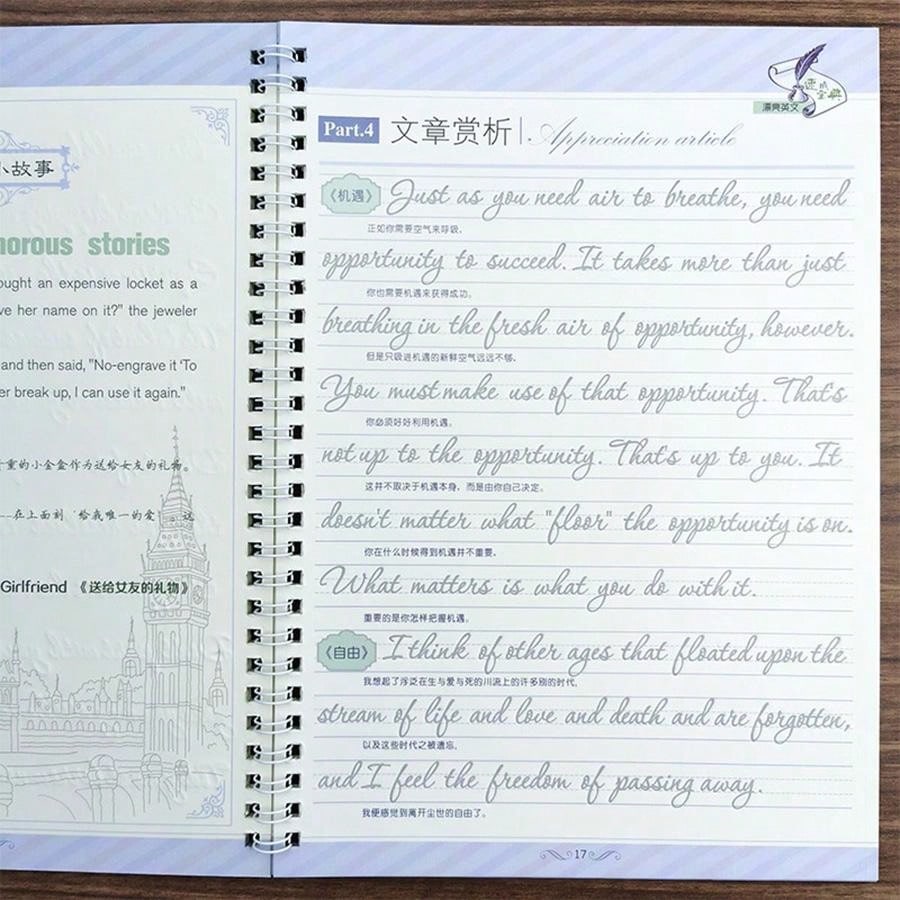 小故事
norous stories
ought an expensive locket as a
ve her name on it?" the jeweler
and then said, "No-engrave it 'To
er break up, I can use it again."
贵重的小金盒作为送给女友的礼物。
--在上面刻‘给我唯一的爱’。这
Girlfriend 《送给女友的礼物》
漂亮英文
Part.4 文章赏析 Appreciation article
《机遇》 Just as you need air to breathe, you need
正如你需要空气来呼吸，
opportunity to succeed. It takes more than just
你也需要机遇来获得成功。
breathing in the fresh air of opportunity, however.
但是只吸进机遇的新鲜空气远远不够。
You must make use of that opportunity. That's
你必须好好利用机遇。
not up to the opportunity. That's up to you. It
这并不取决于机遇本身，而是由你自己决定。
doesn't matter what "floor" the opportunity is on.
你在什么时候得到机遇并不重要，
What matters is what you do with it.
重要的是你怎样把握机遇。
《自由》 I think of other ages that floated upon the
我想起了浮泛在生与爱与死的川流上的许多别的时代，
stream of life and love and death and are forgotten,
以及这些时代之被遗忘，
and I feel the freedom of passing away.
我便感觉到离开尘世的自由了。
17